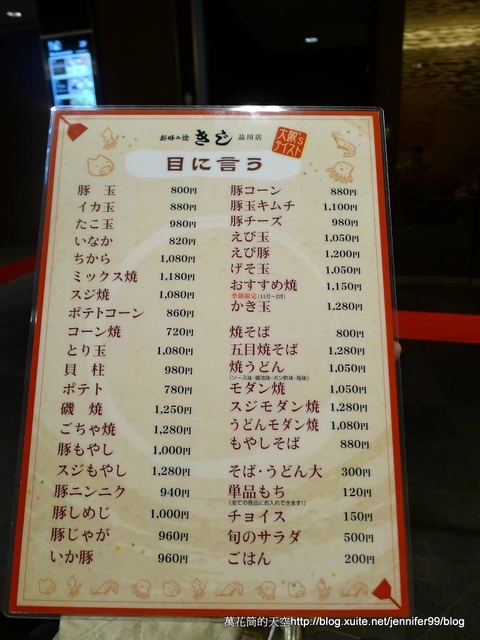 お好み焼 きじ 品川店
大阪's
テイスト
目に言う
豚 玉 800円
イカ玉 880円
たこ玉 980円
いなか 820円
ちから 1,080円
ミックス焼 1,180円
スジ焼 1,080円
ポテトコーン 860円
コーン焼 720円
とり玉 1,080円
貝 柱 980円
ポテト 780円
磯 焼 1,250円
ごちゃ焼 1,280円
豚もやし 1,000円
スジもやし 1,280円
豚ニンニク 940円
豚しめじ 1,000円
豚じゃが 960円
いか豚 960円
豚コーン 880円
豚玉キムチ 1,100円
豚チーズ 980円
えび玉 1,050円
えび豚 1,200円
げそ玉 1,050円
おすすめ焼 1,150円
季節限定(11月〜2月)
かき玉 1,280円
焼そば 800円
五目焼そば 1,280円
焼うどん 1,050円
(ソース味・醤油味・ポン酢味・塩味)
モダン焼 1,050円
スジモダン焼 1,280円
うどんモダン焼 1,080円
もやしそば 880円
そば・うどん大 300円
単品もち 120円
(全ての商品にお入れできます!)
チョイス 150円
旬のサラダ 500円
ごはん 200円
萬花筒的天空http://blog.xuite.net/jennifer99/blog